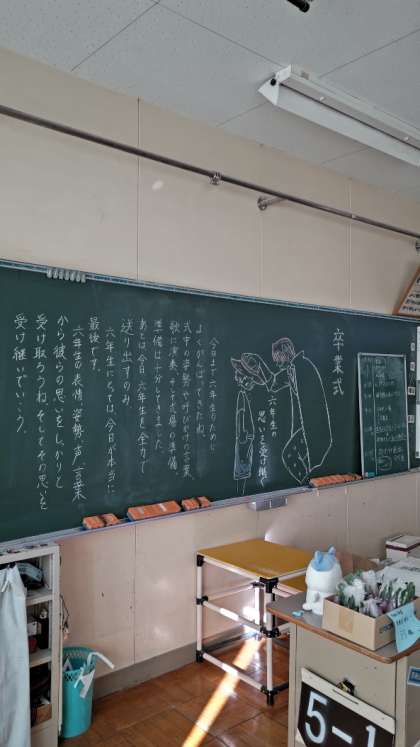 卒業式
六年生の
思いを受け継ぐ
今日まで六年生のために
よくがんばってきたね。
式中の姿勢や呼びかけの言葉
歌に演奏、そして式場の準備。
準備は十分してきました。
あとは今日、六年生を全力で
送り出すのみ。
六年生にとっては、今日が本当に
最後です。
六年生の表情、姿勢、声、言葉
から彼らの思いをしっかりと
受け取ろうね。そしてその思いを
受け継いでいこう。
5-1